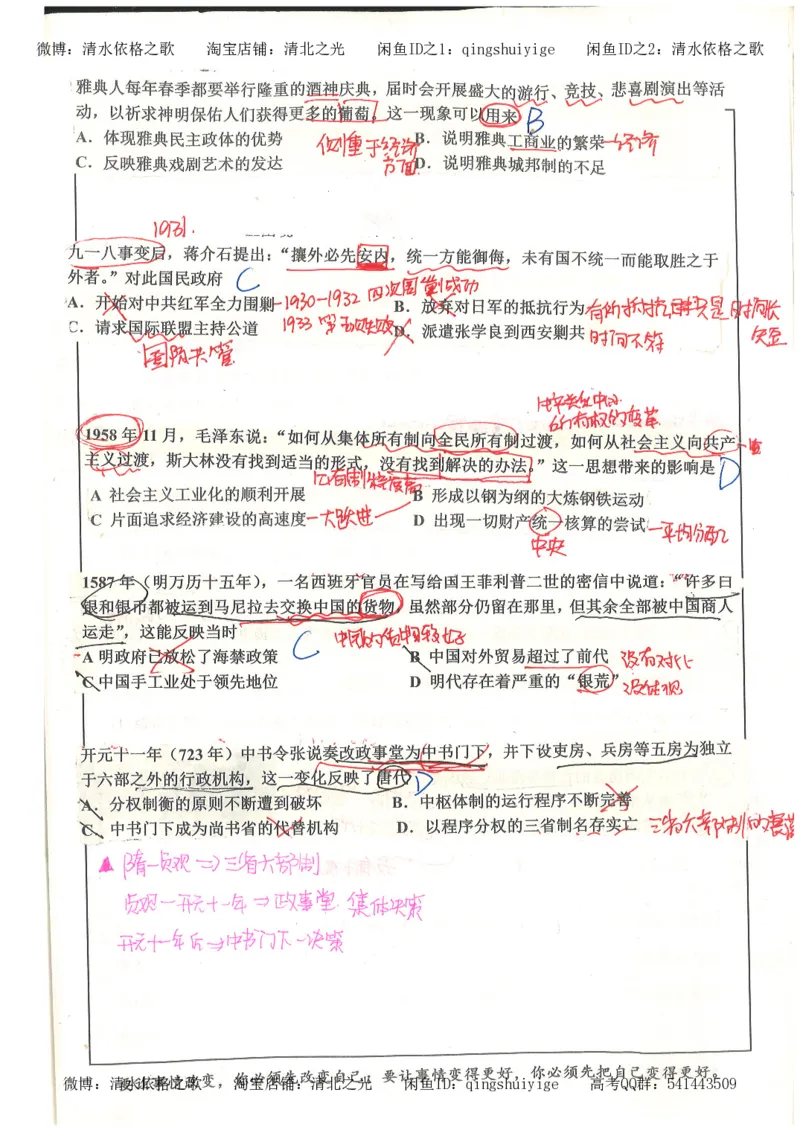 微博：清水依格之歌 淘宝店铺：清北之光 闲鱼ID之1：qingshuiyige 闲鱼ID之2：清水依格之歌
雅典人每年春季都要举行隆重的酒神庆典，届时会开展盛大的游行、竞技、悲喜剧演出等活
动，以祈求神明保佑人们获得更多的葡萄。这一现象可以用来 B
A．体现雅典民主政体的优势 侧重于经济方面 B．说明雅典工商业的繁荣 经济
C．反映雅典戏剧艺术的发达 D．说明雅典城邦制的不足
1931.
九一八事变后，蒋介石提出：“攘外必先安内，统一方能御侮，未有国不统一而能取胜之于
外者。”对此国民政府 C
A．开始对中共红军全力围剿 1930-1932 四次围剿成功 B．放弃对日军的抵抗行为
C．请求国际联盟主持公道 1933 D．派遣张学良到西安剿共 时间不符
国际共管
所有权的变革
1958 年 11 月，毛泽东说：“如何从集体所有制向全民所有制过渡，如何从社会主义向共产
主义过渡，斯大林没有找到适当的形式，没有找到解决的办法。”这一思想带来的影响是 D
A 社会主义工业化的顺利开展 B 形成以钢为纲的大炼钢铁运动
C 片面追求经济建设的高速度 大跃进 D 出现一切财产统一核算的尝试 平均分配
中央
1587 年（明万历十五年），一名西班牙官员在写给国王菲利普二世的密信中说道：“许多白
银和银币都被运到马尼拉去交换中国的货物，虽然部分仍留在那里，但其余全部被中国商人
运走”，这能反映当时 C 中国的货物较好
A 明政府已放松了海禁政策 B 中国对外贸易超过了前代 没有对比
C 中国手工业处于领先地位 D 明代存在着严重的“银荒” 没体现
开元十一年（723 年）中书令张说奏改政事堂为中书门下，并下设吏房、兵房等五房为独立
于六部之外的行政机构，这一变化反映了唐代 D
A．分权制衡的原则不断遭到破坏 B．中枢体制的运行程序不断完善
C．中书门下成为尚书省的代替机构 D．以程序分权的三省制名存实亡
▲ 隋-贞观 ⇒ 三省六部制
贞观-开元十一年 ⇒ 政事堂 集体决策
开元十一年后 ⇒ 中书门下-决策
要让事情改变，你必须先改变自己；要让事情变得更好，你必须先把自己变得更好。
微博：清水依格之歌 淘宝店铺：清北之光 闲鱼ID：qingshuiyige 高考QQ群：541443509